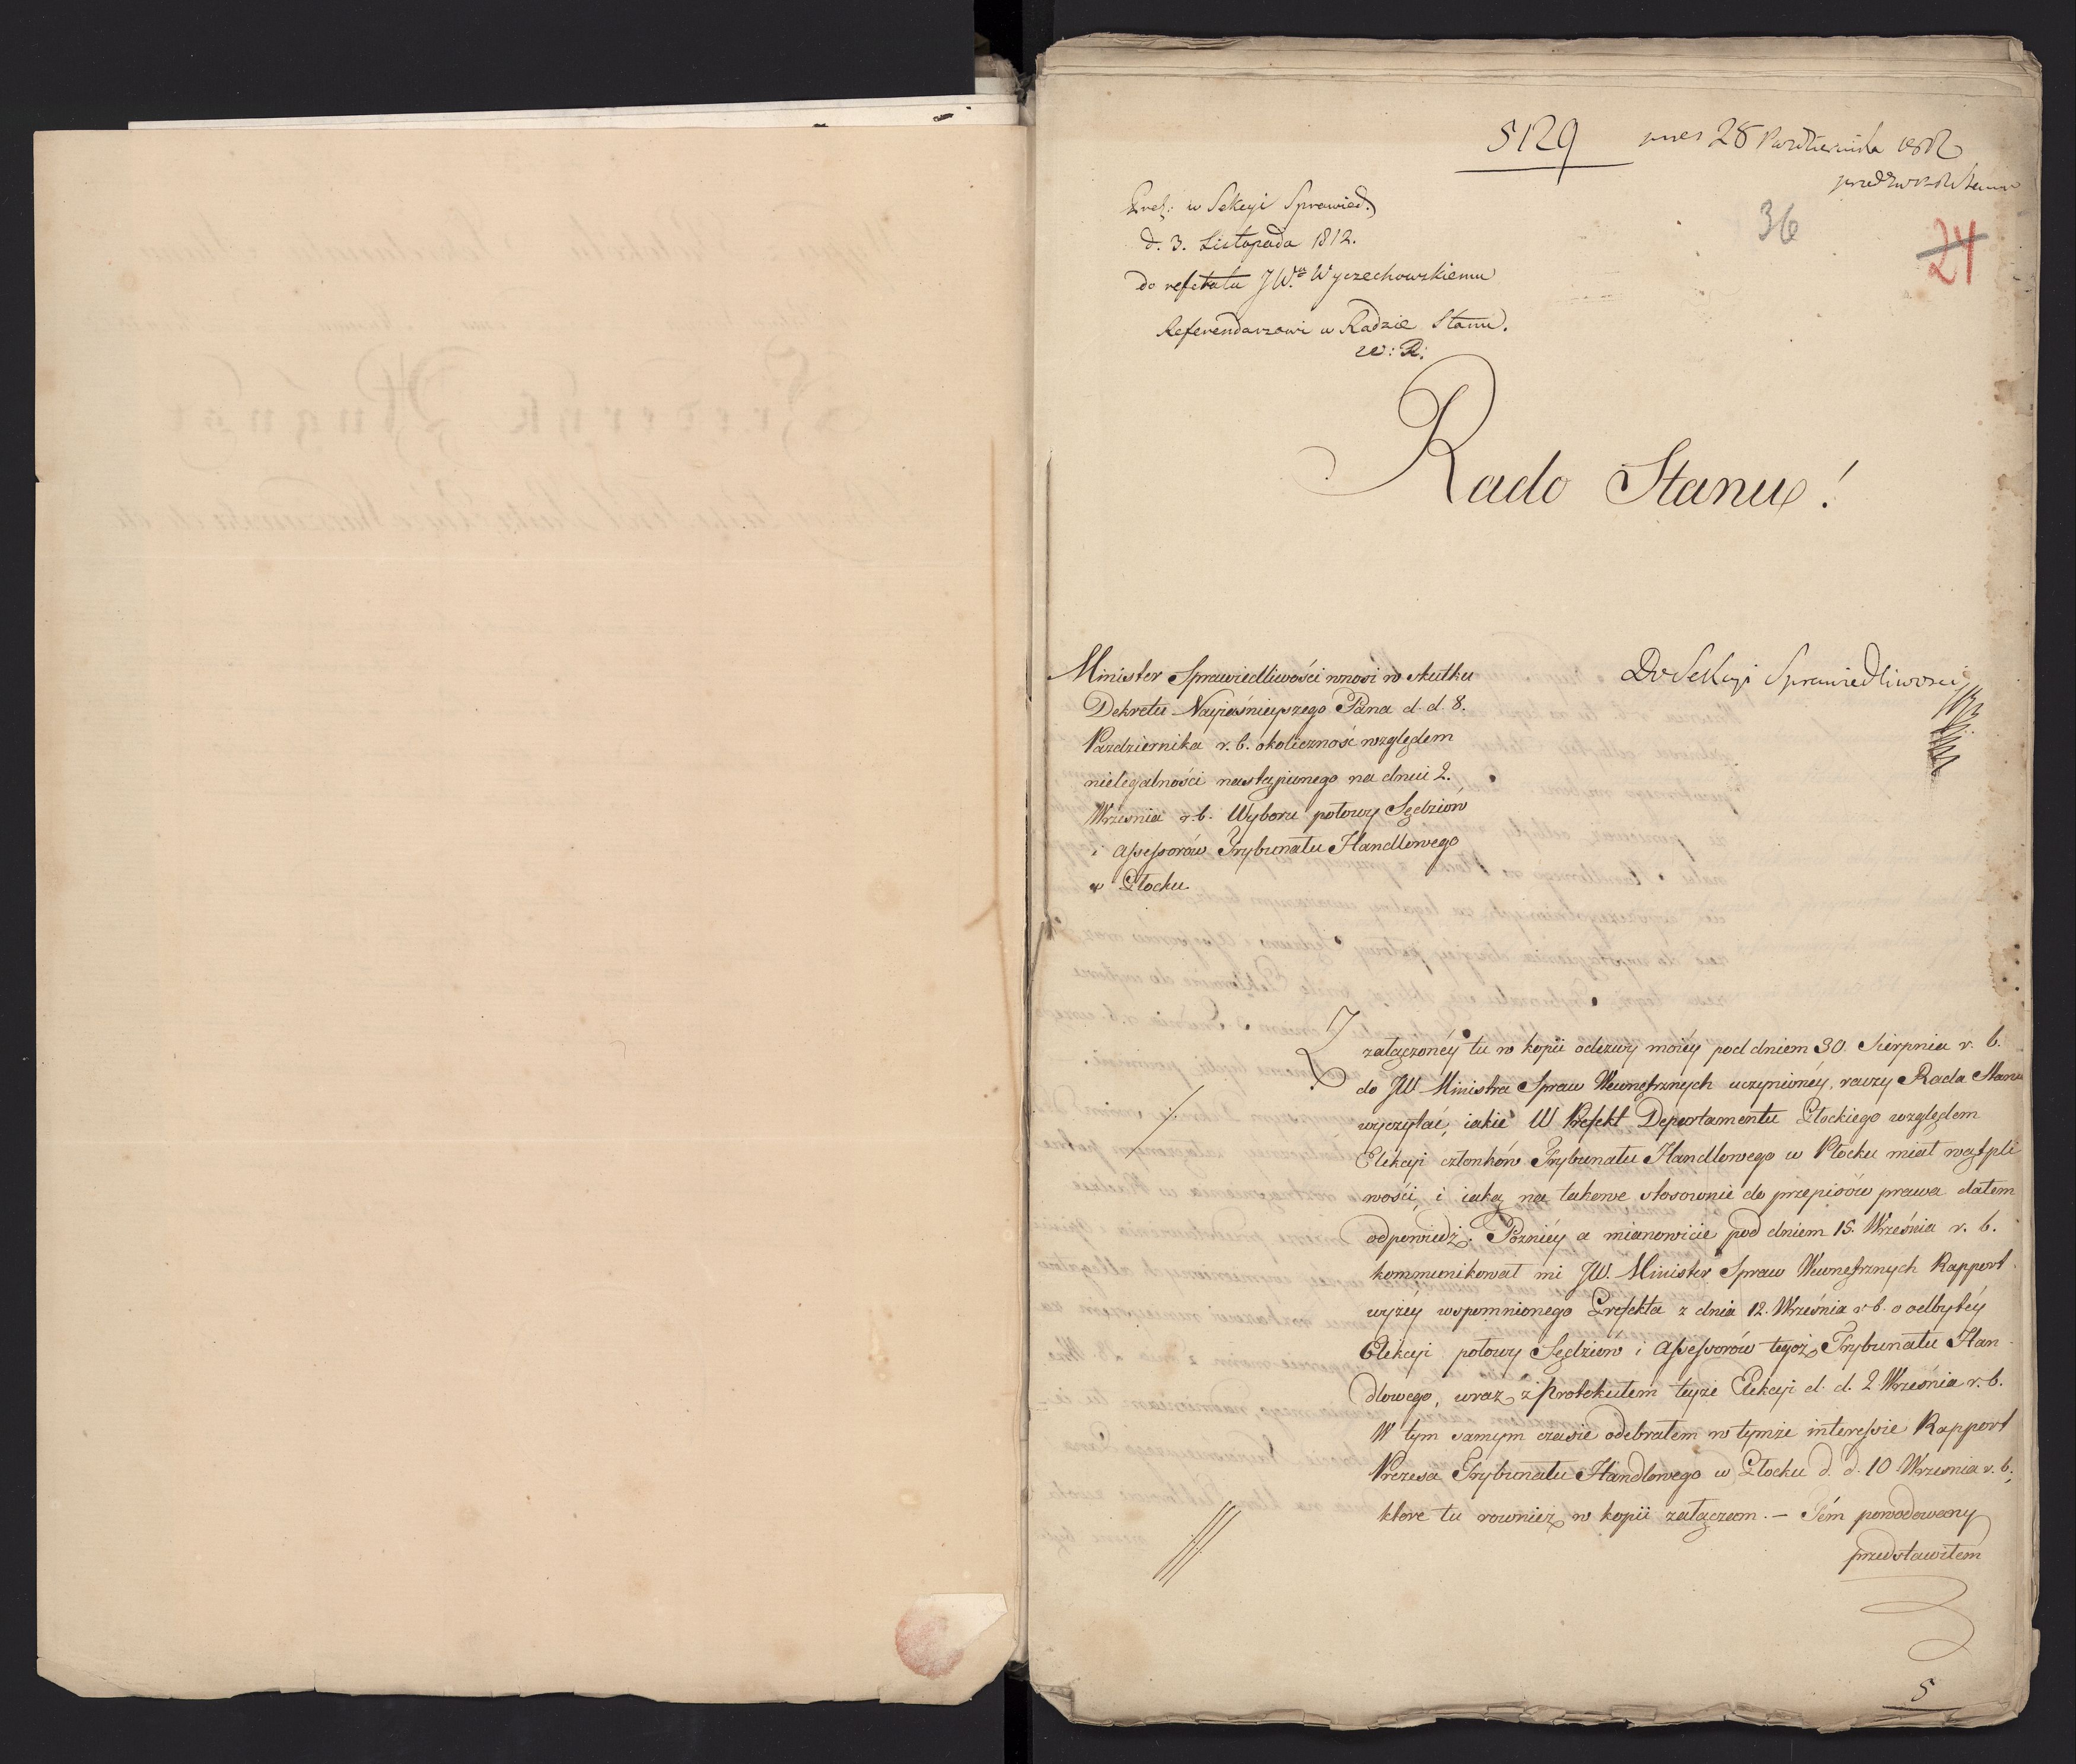 5129 28 Października 1812
36
24
Pref: w Sekcyi Sprawied.
d. 3. Listopada 1812.
do refetatu JWu Wyczechowskiemu
Referendarzowi w Radzie Stanu.
w: R:
Rado Stanu!
Do Sekcyi Sprawiedliwosci
Minister Sprawiedliwości wnosi w skutku
Dekretu Nayiaśnieyszego Pana d. d. 8.
Pazdziernika r. b. okoliczność względem
nielegalności nastąpionego na dniu 2.
Września r. b. Wyboru połowy Sędziów
i Assessorów Trybunału Handlowego
w Płocku
Z załączonéy tu w kopii odezwy moiéy pod dniem 30. Sierpnia r. b.
do JW Ministra Spraw Wewnętrznych uczynionéy, raczy Rada Stanu
wyczytać, iakie W Prefekt Departamentu Płockiego względem
Elekcyi członków Trybunału Handlowego w Płocku miał wątpli
wości, i iaką na takowe stosownie do przepisów prawa dałem
odpowiedź. Poźniéy a mianowicie pod dniem 15. Września r. b.
kommunikował mi JW. Minister Spraw Wewnętrznych Rapport
wyżéy wspomnionego Prefekta z dnia 12. Września r. b. o odbytéy
Elekcyi połowy Sędziów i Assessorów tegoż Trybunału Han-
dlowego, wraz z Protokułem teyże Elekcyi d. d. 2 Września r. b.
W tym samym czasie odebrałem w tymże interessie Rapport
Prezesa Trybunału Handlowego w Płocku d. d. 10 Września r. b.,
które tu rownież w kopii załączam. – Tém powodowany
przedstawiłem
5